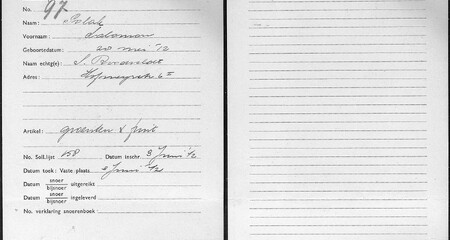 No. 97
Naam: Polak
Voornaam: Salomon
Geboortedatum: 20 mei '12
Naam echtg(e): S.
Adres: Hofmeyrstr 6 II
Artikel: groenten & fruit
No. Soll.lijst 158 Datum inschr. 8 Juni '42
Datum toek: Vaste plaats Juni '42
Datum snoer
bijsnoer uitgereikt
Datum snoer
bijsnoer ingeleverd
No. verklaring snoerenboek: